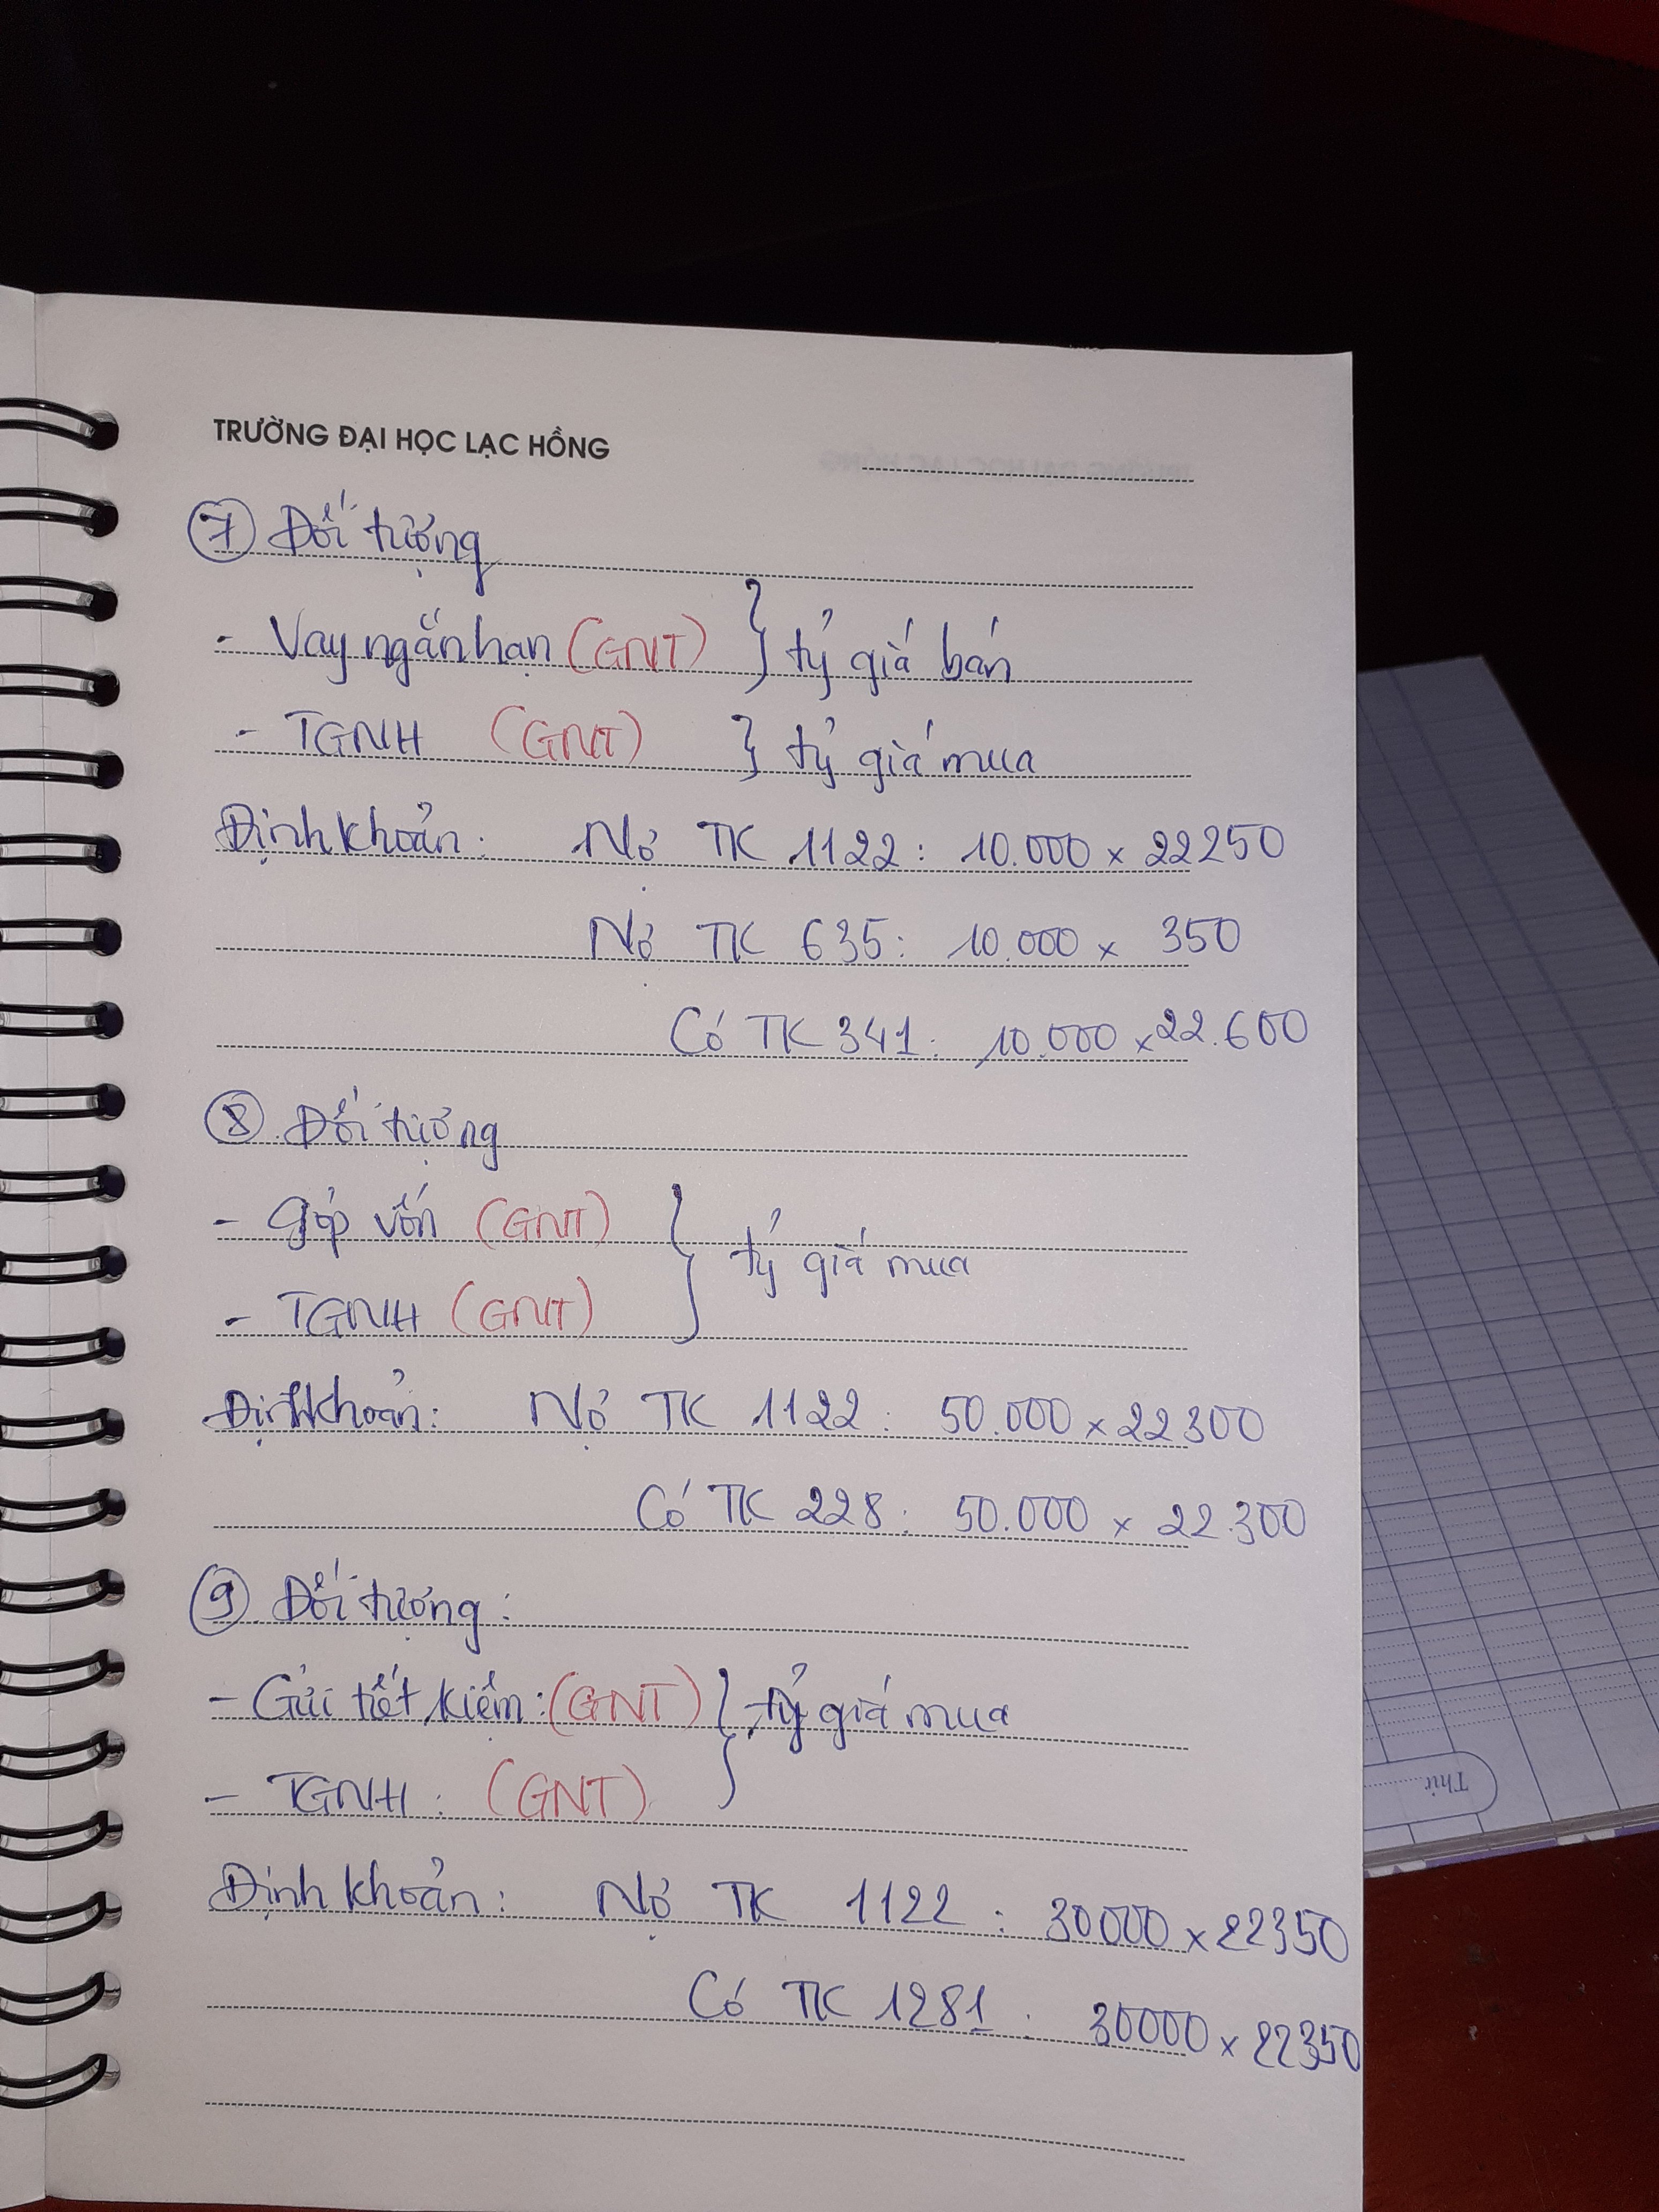 TRƯỜNG ĐẠI HỌC LẠC HỒNG
⑦ Đối tượng
- Vay ngắn hạn (GNT) } tỷ giá bán
- TGNH (GNT) } tỷ giá mua
Định khoản: Nợ TK 1122: 10.000 x 22250
Nợ TK 635: 10.000 x 350
Có TK 341: 10.000 x 22.600
⑧ Đối tượng
- góp vốn (GNT)
} tỷ giá mua
- TGNH (GNT)
Định khoản: Nợ TK 1122: 50.000 x 22300
Có TK 228: 50.000 x 22.300
⑨ Đối tượng:
- Gửi tiết kiệm: (GNT) } tỷ giá mua
- TGNH: (GNT)
Định khoản: Nợ TK 1122: 30000 x 22350
Có TK 1281: 30000 x 22350
Thứ